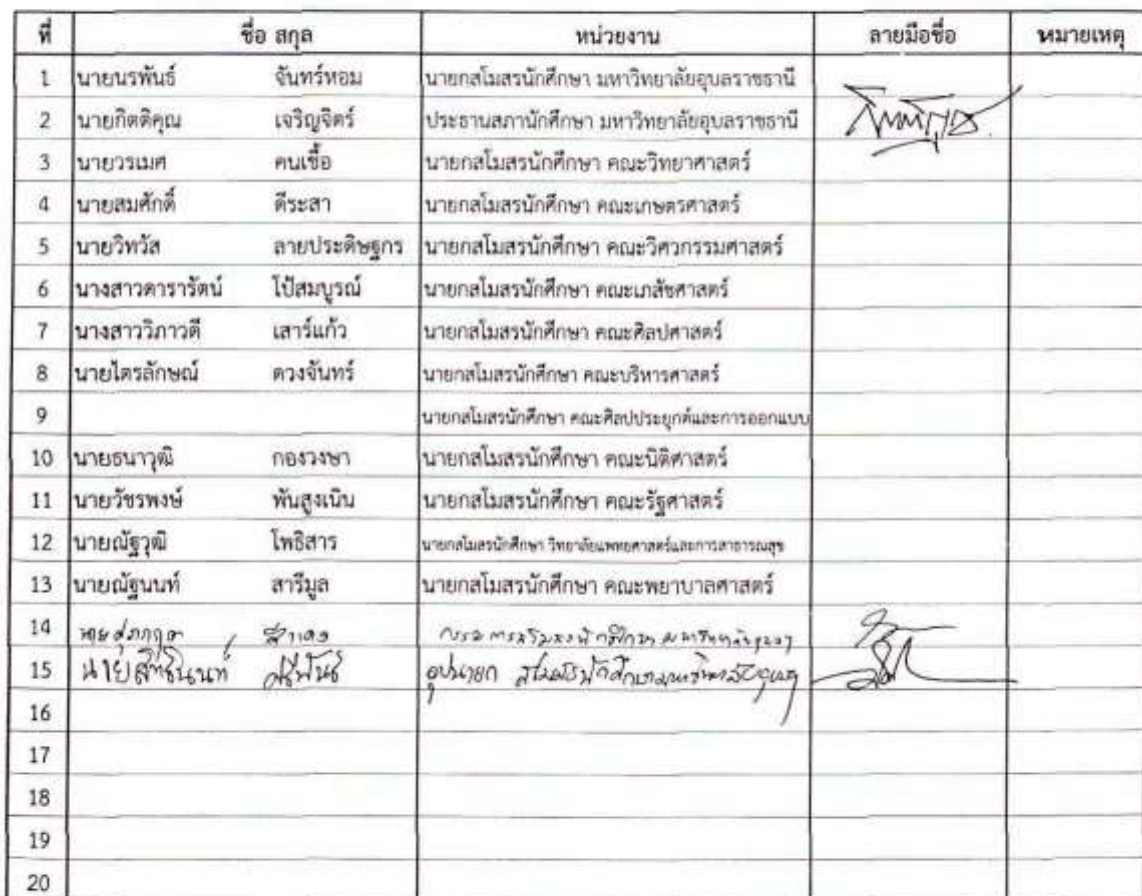 ที่ ชื่อ สกุล หน่วยงาน ลายมือชื่อ หมายเหตุ
1 นายนรพันธ์ จันทร์หอม นายกสโมสรนักศึกษา มหาวิทยาลัยอุบลราชธานี
2 นายกิตติคุณ เจริญจิตร์ ประธานสภานักศึกษา มหาวิทยาลัยอุบลราชธานี
3 นายวรเมศ คนเชื้อ นายกสโมสรนักศึกษา คณะวิทยาศาสตร์
4 นายสมศักดิ์ ดีระสา นายกสโมสรนักศึกษา คณะเกษตรศาสตร์
5 นายวิทวัส ลายประดิษฐกร นายกสโมสรนักศึกษา คณะวิศวกรรมศาสตร์
6 นางสาวดารารัตน์ โป้สมบูรณ์ นายกสโมสรนักศึกษา คณะเภสัชศาสตร์
7 นางสาววิภาวดี เสาร์แก้ว นายกสโมสรนักศึกษา คณะศิลปศาสตร์
8 นายไตรลักษณ์ ดวงจันทร์ นายกสโมสรนักศึกษา คณะบริหารศาสตร์
9 นายกสโมสรนักศึกษา คณะศิลปประยุกต์และการออกแบบ
10 นายธนาวุฒิ กองวงษา นายกสโมสรนักศึกษา คณะนิติศาสตร์
11 นายวัชรพงษ์ พันสูงเนิน นายกสโมสรนักศึกษา คณะรัฐศาสตร์
12 นายณัฐวุฒิ โพธิสาร นายกสโมสรนักศึกษา วิทยาลัยแพทยศาสตร์และการสาธารณสุข
13 นายณัฐนนท์ สารีมูล นายกสโมสรนักศึกษา คณะพยาบาลศาสตร์
14
15 อุปนายก
16
17
18
19
20